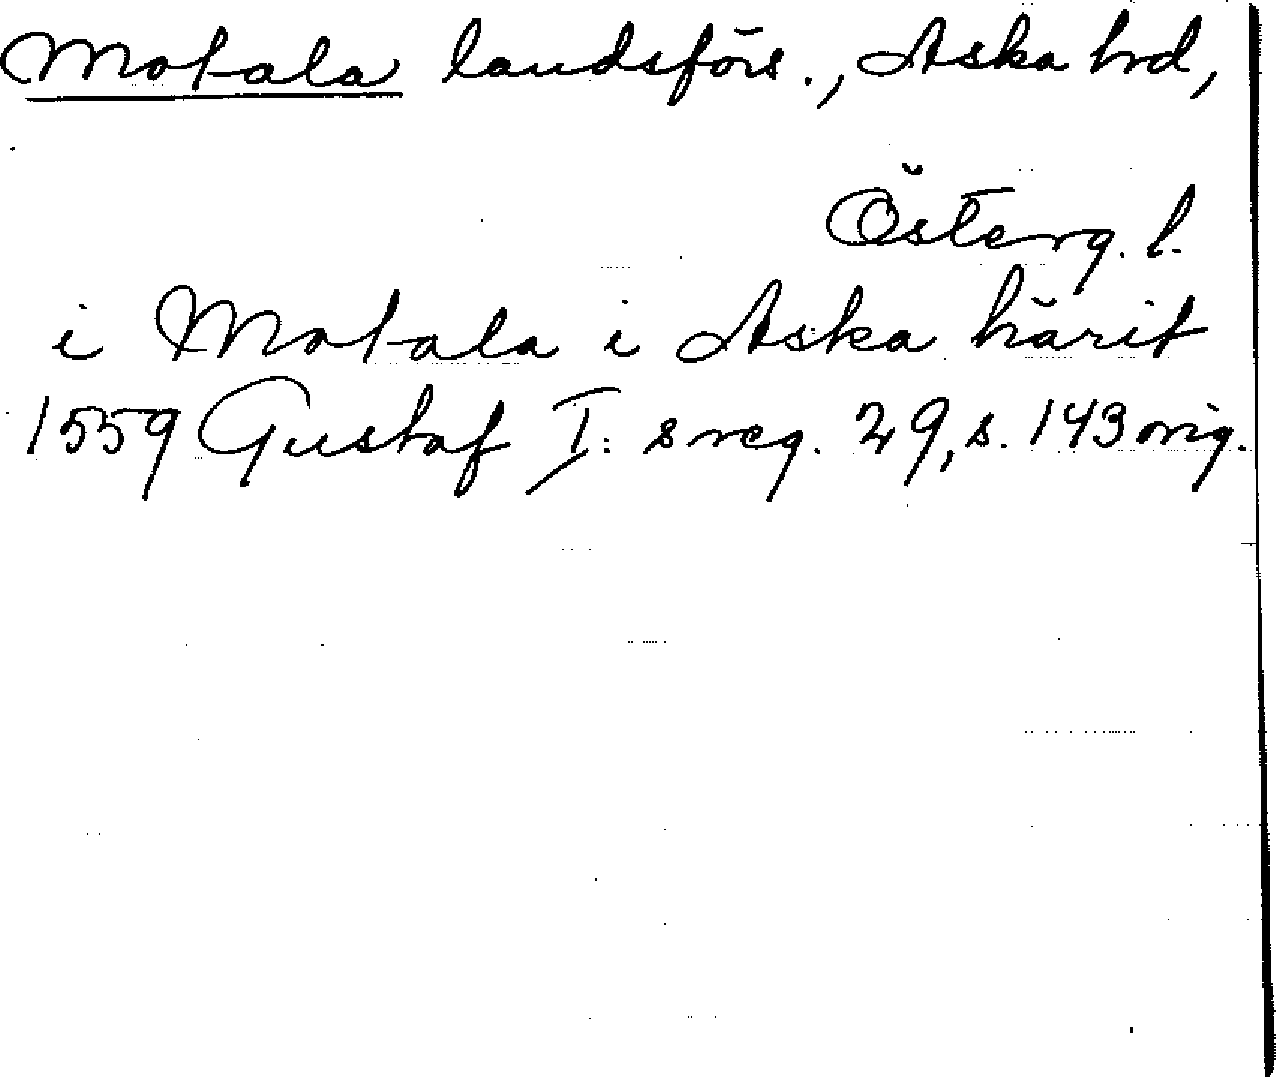 Motala landsförs., Aska hrd,
Österg. l.
i Motala i Aska härit
1559 Gustaf I: s reg. 29, s. 143 orig.